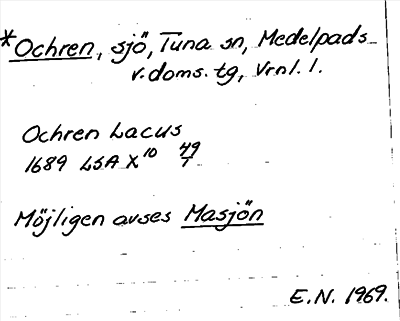 *Ochren, sjö, Tuna sn, Medelpads
v. doms. tg, Vrnl. l.
Ochren Lacus
1689 LSA X¹⁰ 49/1
Möjligen avses Masjön
E.N. 1969.